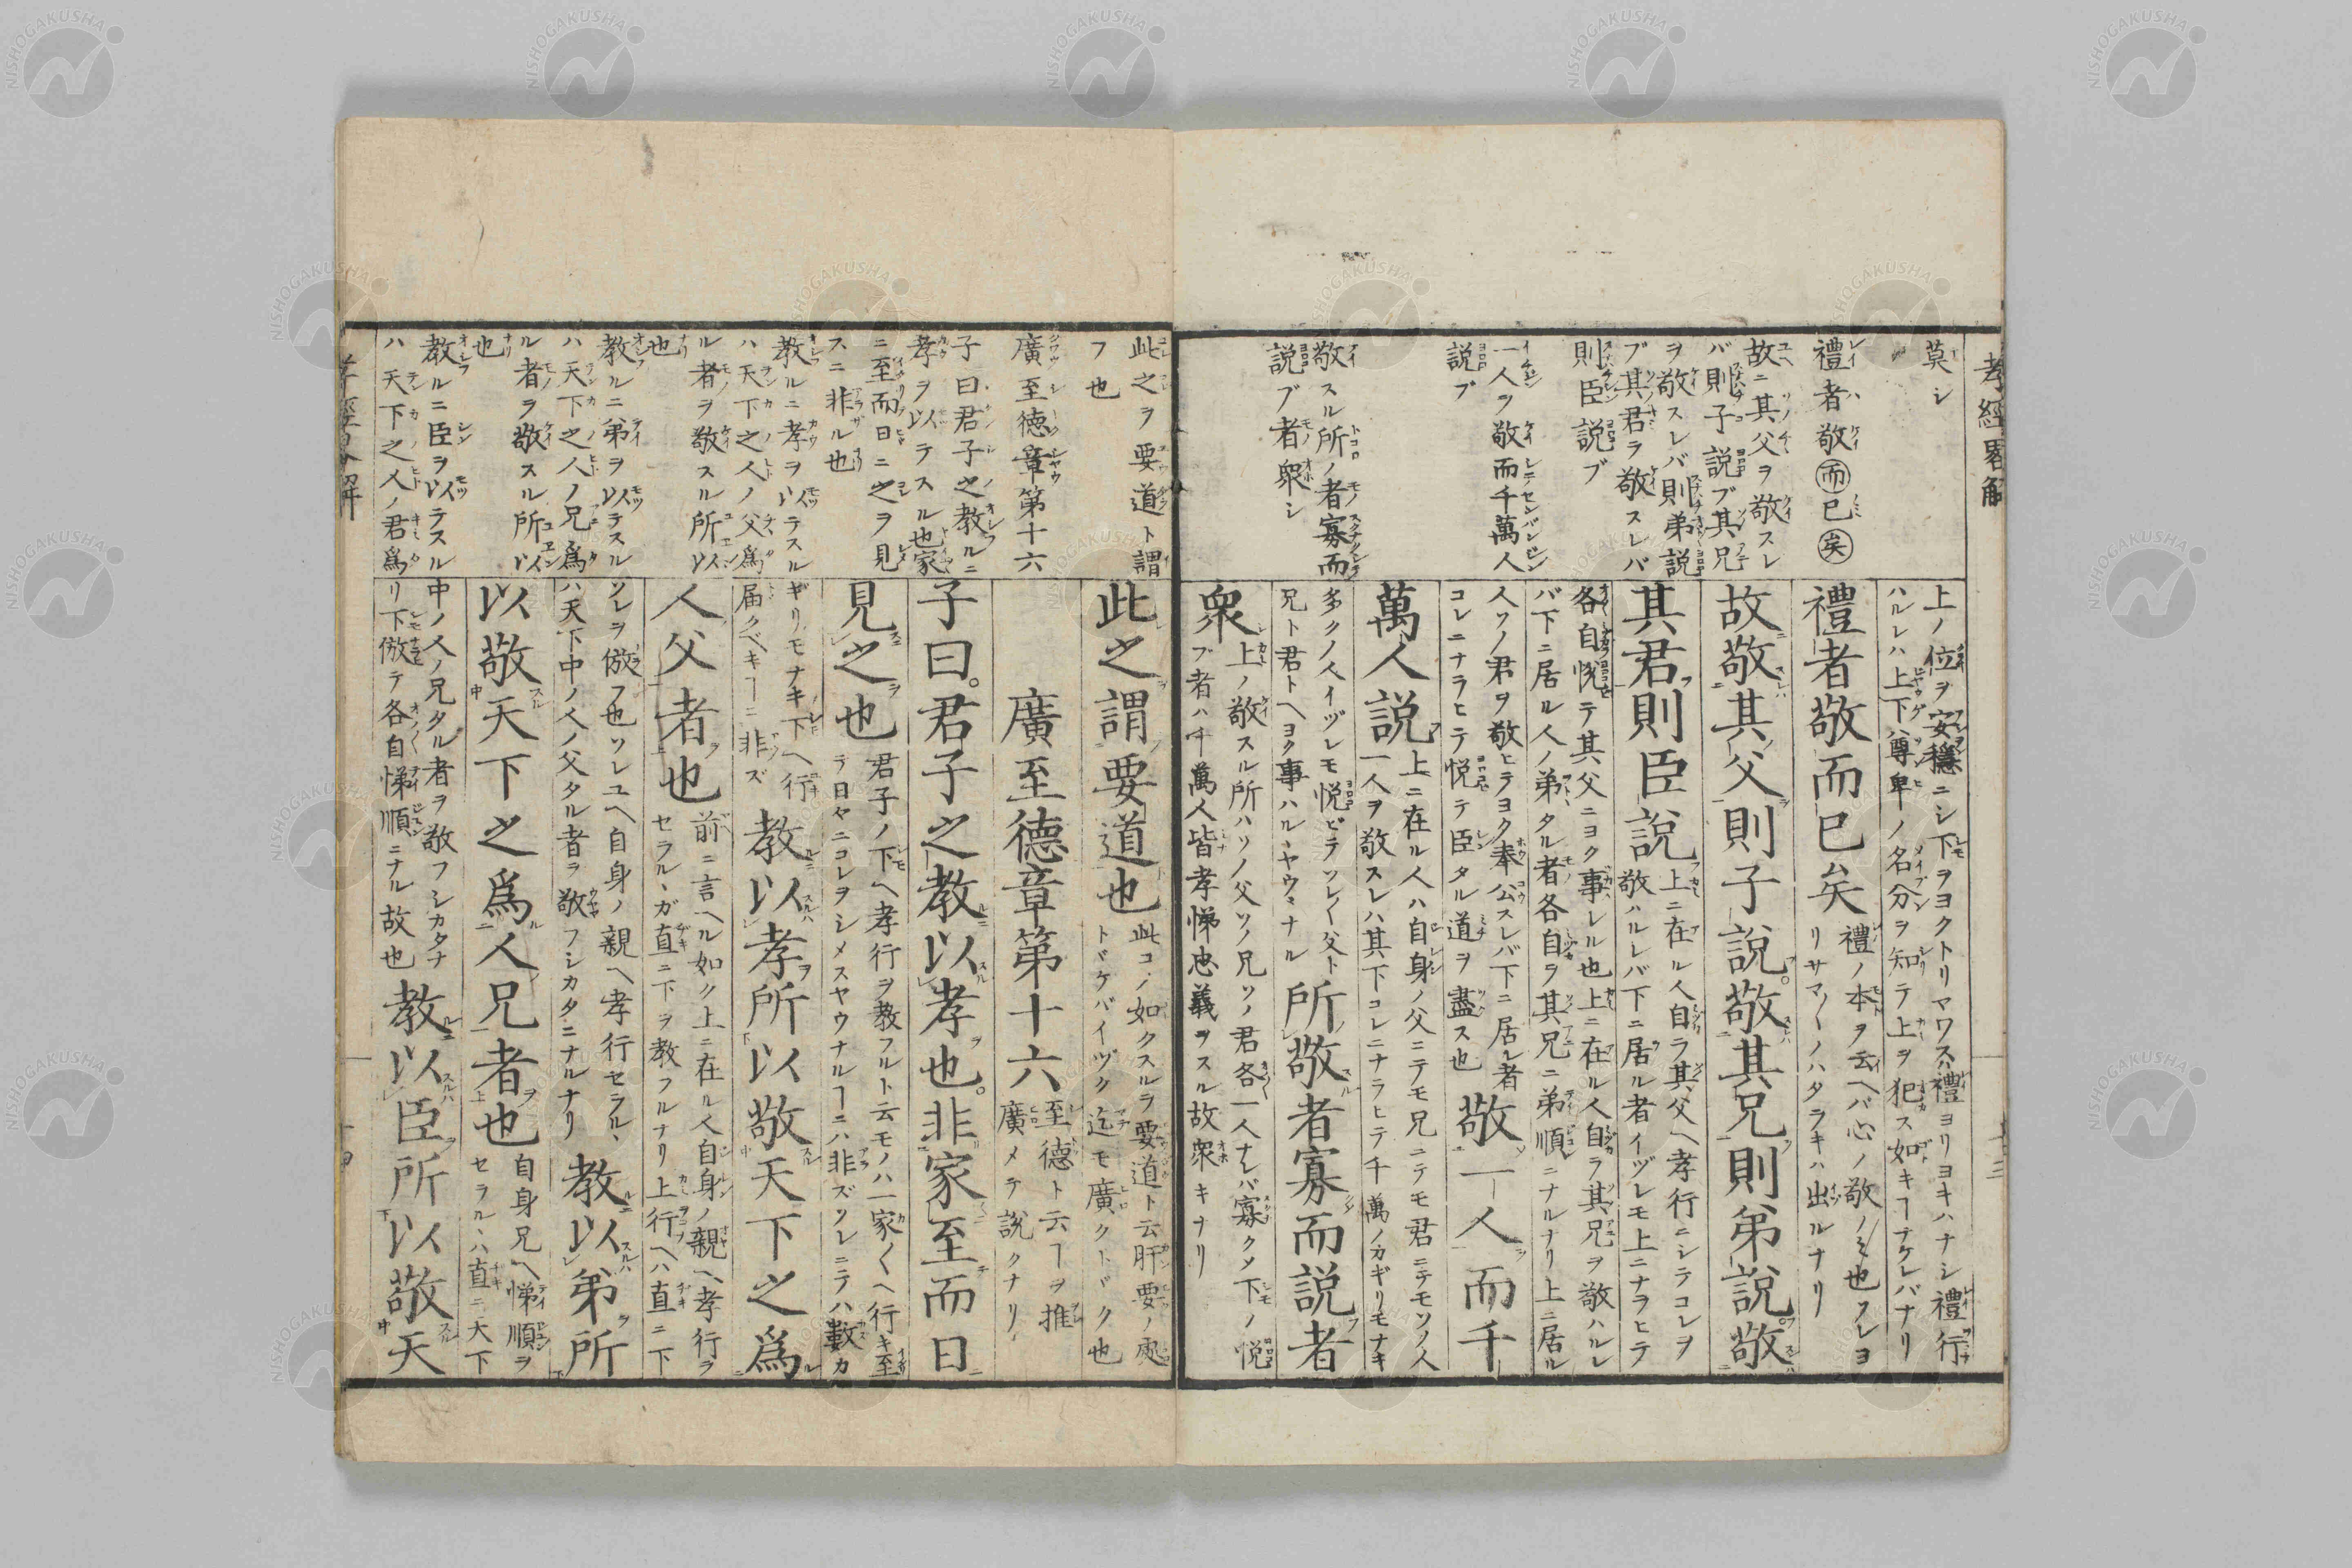 孝經畧解
莫シ
禮者敬而已矣
故ニ其父ヲ敬スレ
バ則子説ブ其兄
ヲ敬スレバ則弟説
ブ其君ヲ敬スレバ
則臣説ブ
一人ヲ敬而千萬人
説ブ
敬スル所ノ者寡而
説ブ者衆シ
上ノ位ヲ安穩ニシ下ヲヨクトリマワスハ禮ヨリヨキハナシ禮行
ハルレハ上下尊卑ノ名分ヲ知テ上ヲ犯ス如キヿナケレバナリ
禮者敬而已矣
禮ノ本ヲ云ヘバ心ノ敬ノミ也ソレヨ
リサマ〱ノハタラキハ出ルナリ
故敬其父則子説敬其兄則弟説敬
其君則臣説
上ニ在ル人自ラ其父ヘ孝行ニシテコレヲ
敬ハルレバ下ニ居ル者イヅレモ上ニナラヒテ
各自悦テ其父ニヨク事レル也上ニ在ル人自ラ其兄ヲ敬ハルレ
バ下ニ居ル人ノ弟タル者各自ラ其兄ニ弟順ニナルナリ上ニ居ル
人ソノ君ヲ敬ヒテヨク奉公スレバ下ニ居ル者
コレニナラヒテ悦テ臣タル道ヲ盡ス也
敬一人而千
萬人説
上ニ在ル人ハ自身ノ父ニテモ兄ニテモ君ニテモソノ人
一人ヲ敬スレハ其下コレニナラヒテ千萬ノカギリモナキ
多クノ人イヅレモ悦ビテソレ〱父ト
兄ト君トヘヨク事ハルヽヤウヽナル
所敬者寡而説者
衆
上ノ敬スル所ハソノ父ソノ兄ソノ君各一人ナレバ寡クメ下ノ悦
ブ者ハ千萬人皆孝悌忠義ヲスル故衆キナリ
此之ヲ要道ト謂
フ也
廣至徳章第十六
子曰君子之教ルニ
孝ヲ以テスル也家
ニ至而日ニ之ヲ見
スニ非ル也
教ルニ孝ヲ以テスル
ハ天下之人ノ父爲
ル者ヲ敬スル所以
也
教ルニ弟ヲ以テスル
ハ天下之人ノ兄爲
ル者ヲ敬スル所以
也
教ルニ臣ヲ以テスル
ハ天下之人ノ君爲
此之謂要道也
此コヽ如クスルヲ要道ト云肝要ノ処
トバケバイヅク迄モ廣クトバク也
廣至德章第十六
至德ト云ヿヲ推
廣メテ説クナリ
子曰君子之教以孝也非家至而日
見之也
君子ノ下ヘ孝行ヲ教フルト云モノハ一家〱ヘ行キ至
テ日々ニコレヲシメスヤウナルヿニハ非ズソレニテハ數カ
ギリモナキ下ヘ行
届クベキヿニ非ズ
教以孝所以敬天下之爲
人父者也
前ニ言ヘル如ク上ニ在ル人自身ノ親ヘ孝行ヲ
セラルヽガ直ニ下ヲ教フルナリ上行ヘハ直ニ下
ソレヲ倣フ也ソレユヘ自身ノ親ヘ孝行セラルヽ
ハ天下中ノ人ノ父タル者ヲ敬フシカタニナルナリ
教以弟所
以敬天下之爲人兄者也
自身兄ヘ悌順ヲ
セラルヽハ直ニ天下
中ノ人ノ兄タル者ヲ敬フシカタナ
リ下倣テ各自悌順ニナル故也
教以臣所以敬天
孝經畧解